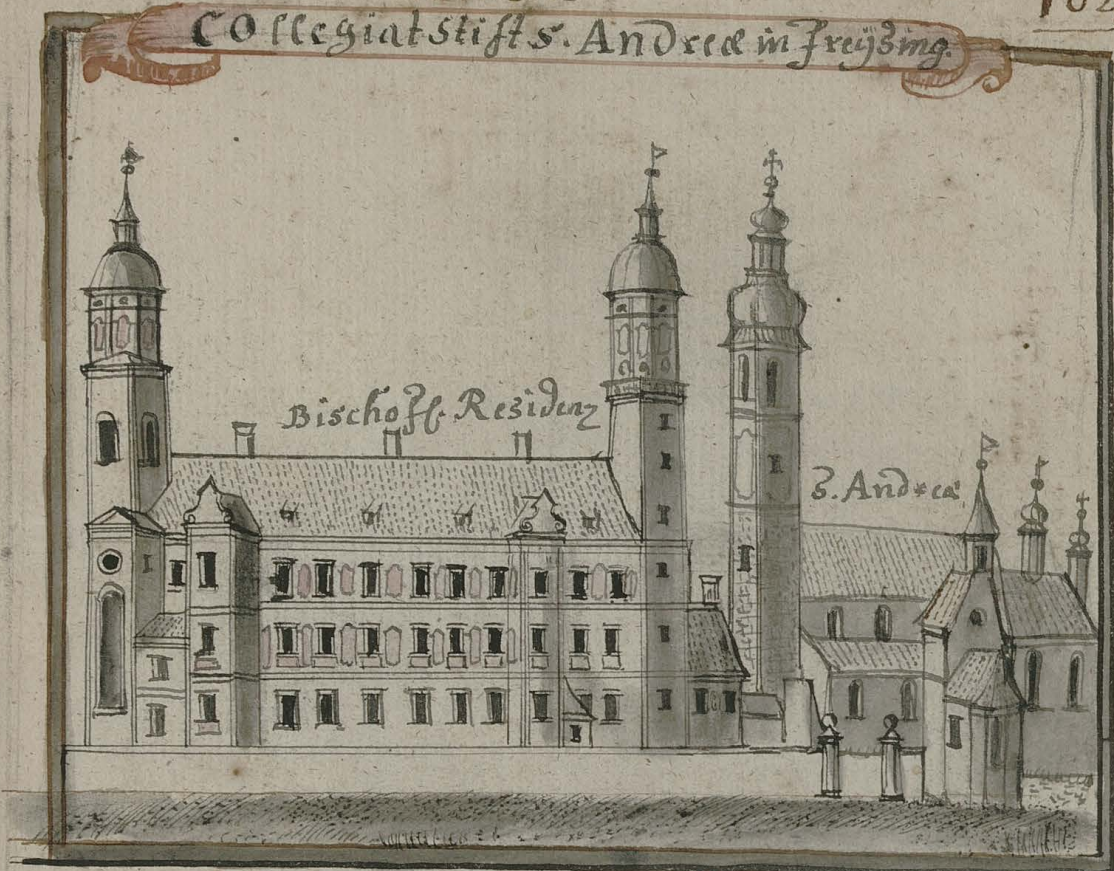 Collegiatstift S. Andreæ in Freÿsing.
Bischoffl. Residenz
S. Andreæ